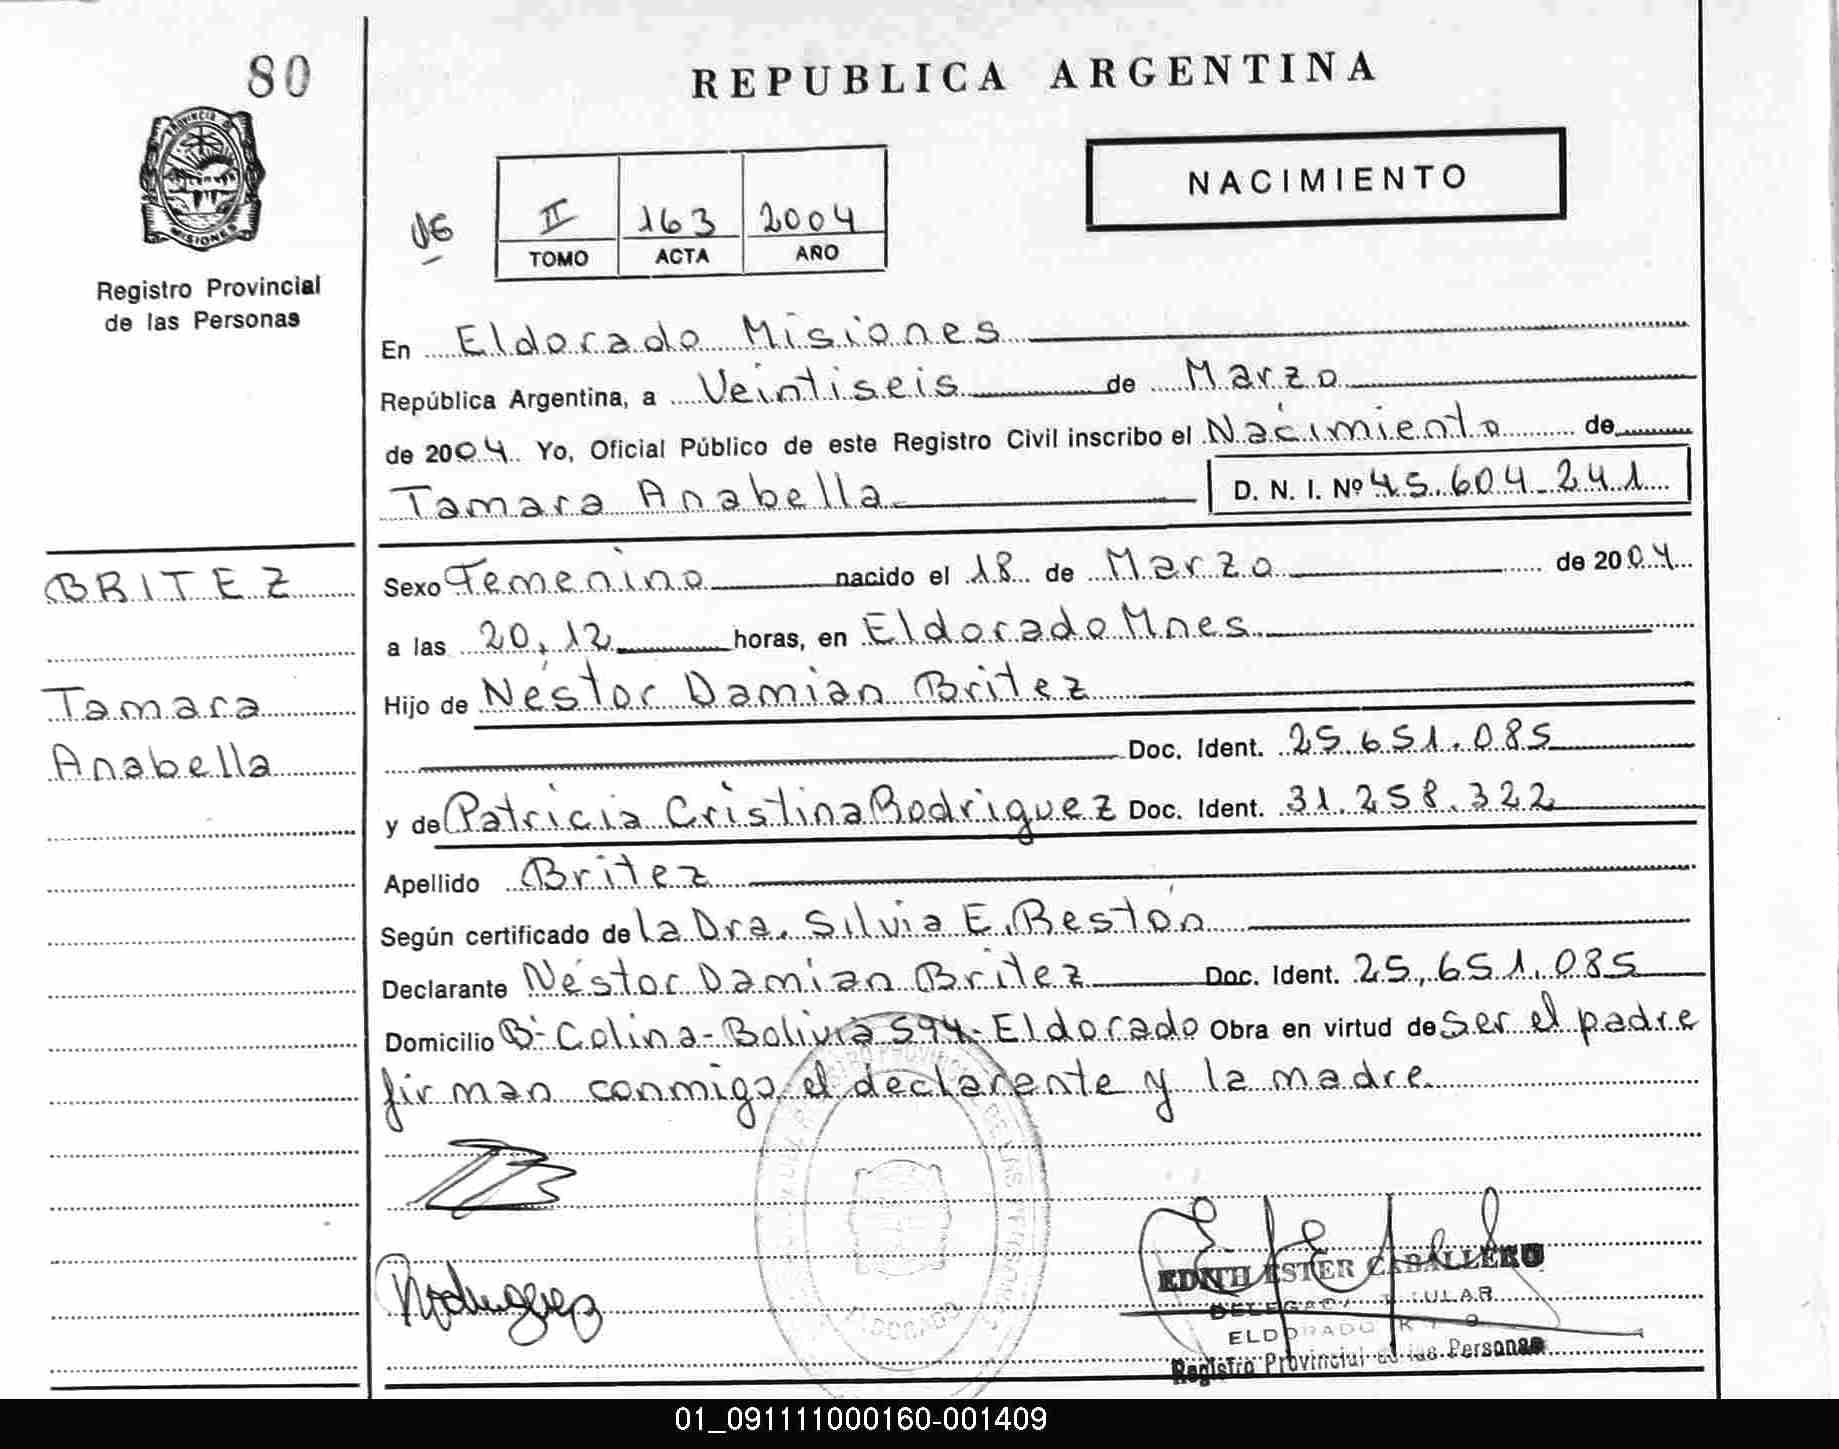 80
REPUBLICA ARGENTINA
PROVINCIA DE
MISIONES
Registro Provincial
de las Personas
NACIMIENTO
II 163 2004
TOMO ACTA AÑO
En Eldorado Misiones
República Argentina, a Veintiseis de Marzo
de 2004. Yo, Oficial Público de este Registro Civil inscribo el Nacimiento de
Tamara Anabella D. N. I. Nº 45.604.241
BRITEZ
Tamara
Anabella
Sexo Femenino nacido el 18 de Marzo de 2004
a las 20,12 horas, en Eldorado Mnes
Hijo de Néstor Damian Britez
Doc. Ident. 25.651.085
y de Patricia Cristina Rodriguez Doc. Ident. 31.258.322
Apellido Britez
Según certificado de la Dra. Silvia E. Bestón
Declarante Néstor Damian Britez Doc. Ident. 25.651.085
Domicilio Bº Colina-Bolivia 594-Eldorado Obra en virtud de ser el padre
firman conmigo el declarante y la madre
Rodriguez
EDITH ESTER CABALLERO
DELEGADA TITULAR
ELDORADO
Registro Provincial de las Personas
ELDORADO
01_091111000160-001409